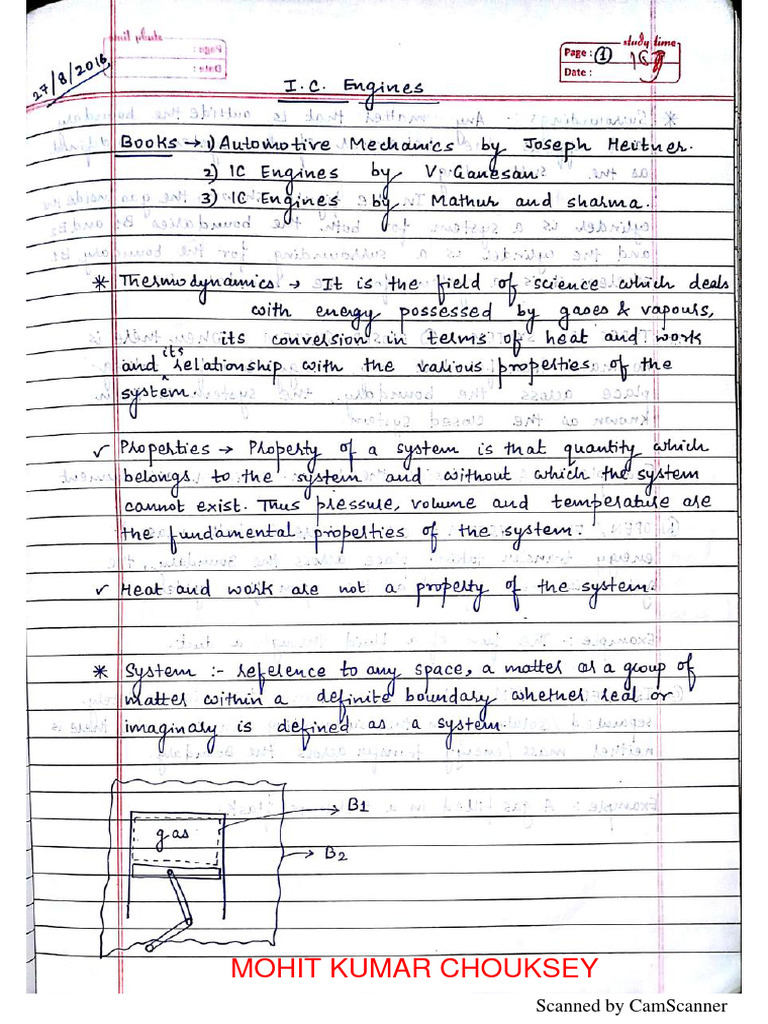 27/8/2016
study time
Page : 1
Date :
I.C. Engines
Books → 1) Automotive Mechanics by Joseph Heitner.
2) IC Engines by V. Ganesan.
3) IC Engines by Mathur and sharma.
* Thermodynamics → It is the field of science which deals
with energy possessed by gases & vapours,
its conversion in terms of heat and work
and its relationship with the various properties of the
system.
✓ Properties → Property of a system is that quantity which
belongs to the system and without which the system
cannot exist. Thus pressure, volume and temperature are
the fundamental properties of the system.
✓ Heat and work are not a property of the system.
* System :- reference to any space, a matter or a group of
matter within a definite boundary whether real or
imaginary is defined as a system.
B1
gas
B2
MOHIT KUMAR CHOUKSEY
Scanned by CamScanner